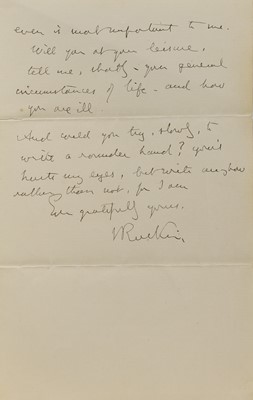 even is most important to me.
Will you at your leisure,
tell me, shortly - your general
circumstances of life - and how
you are ill
And could you try, slowly, to
write a rounder hand? yours
hurts my eyes, but write anyhow
rather than not, for I am
Ever gratefully yours.
JRuskin,